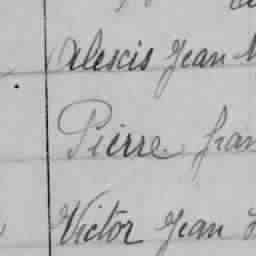 Alexcis Jean
Pierre Jean
Victor Jean